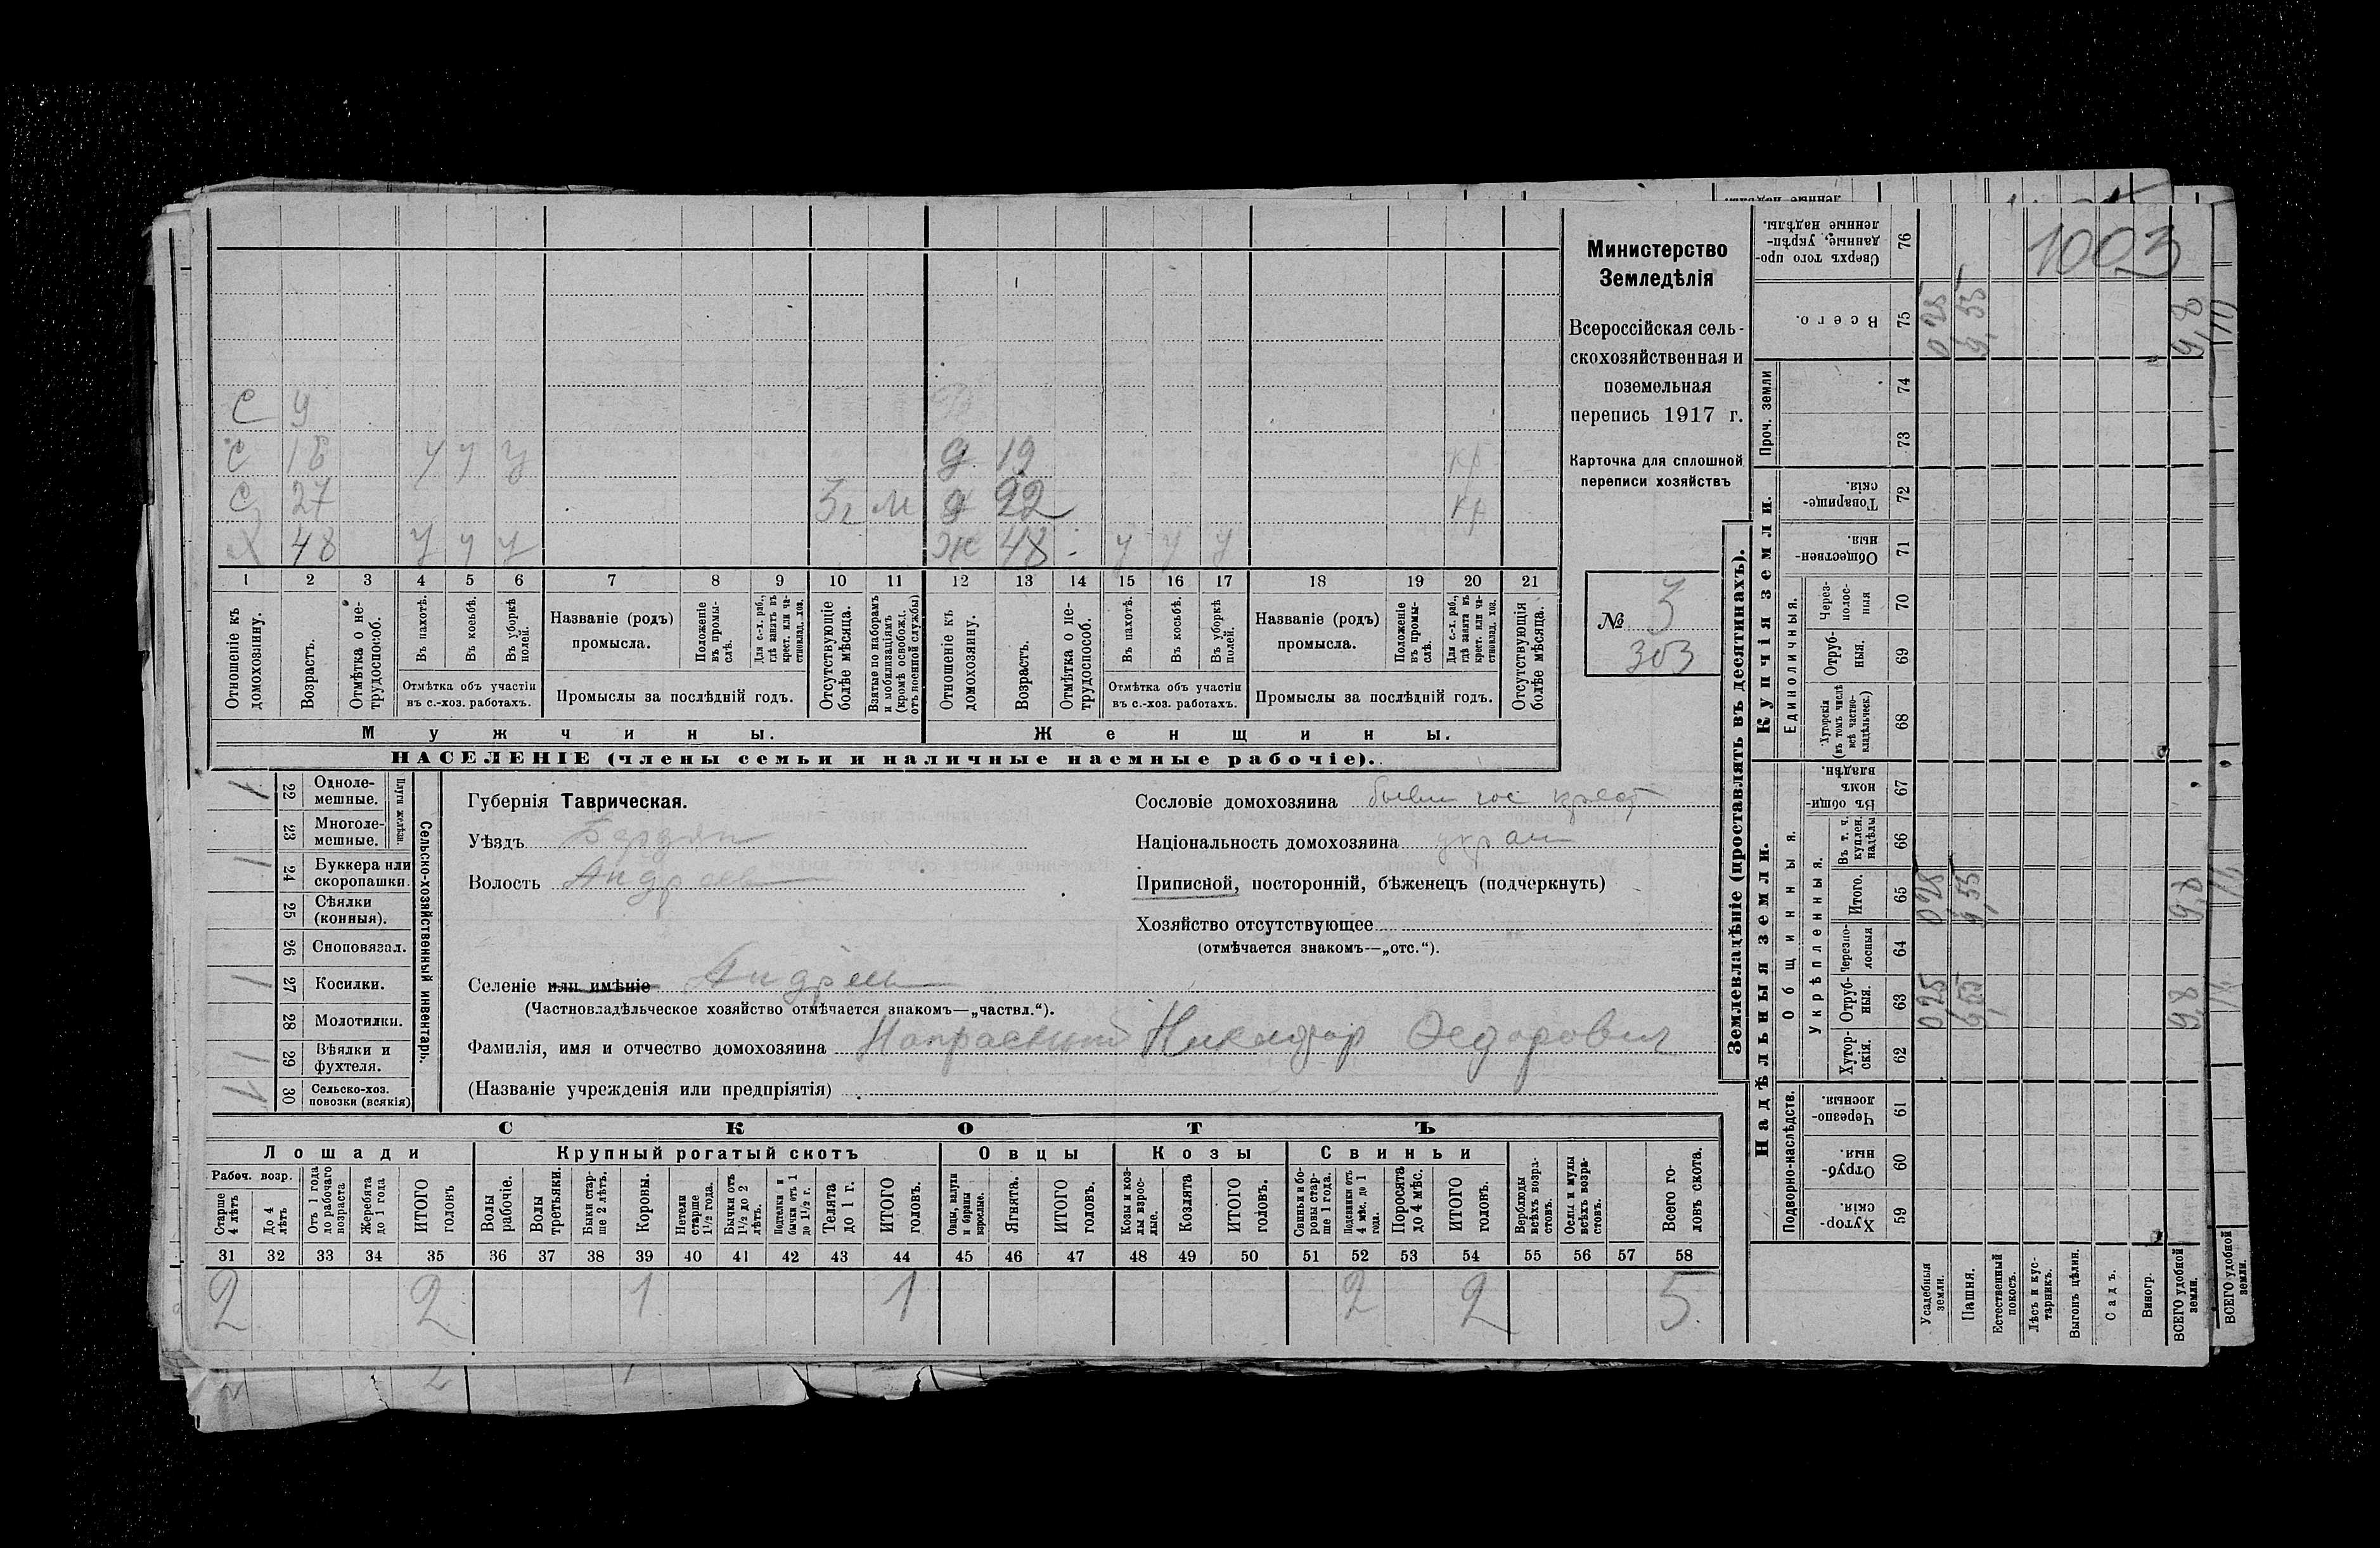 1003
Министерство
Земледѣлія
Всероссійская сель-
скохозяйственная и
поземельная
перепись 1917 г.
Карточка для сплошной
переписи хозяйствъ
№ 3
303
С 9
С 18 у у у Д 19 кр
С 27 3 г М Д 22 кр
Х 48 у у у Ж 48 у у у
1 2 3 4 5 6 7 8 9 10 11 12 13 14 15 16 17 18 19 20 21
Отношеніе къ домохозяину.
Возрастъ.
Отмѣтка о не-трудоспособ.
Въ пахотѣ.
Въ косьбѣ.
Въ уборкѣ полей.
Отмѣтка объ участіи въ с.-хоз. работахъ.
Названіе (родъ) промысла.
Положеніе въ промы-слѣ.
Для с.-х. раб., гдѣ занятъ въ крест. или ча-стновлад. хоз.
Промыслы за послѣдній годъ.
Отсутствующіе болѣе мѣсяца.
Взятые по наборамъ и мобилизаціямъ (кромѣ освобожд. отъ военной службы)
Отношеніе къ домохозяину.
Возрастъ.
Отмѣтка о не-трудоспособ.
Въ пахотѣ.
Въ косьбѣ.
Въ уборкѣ полей.
Отмѣтка объ участіи въ с.-хоз. работахъ.
Названіе (родъ) промысла.
Положеніе въ промы-слѣ.
Для с.-х. раб., гдѣ занята въ крест. или ча-стновлад. хоз.
Промыслы за послѣдній годъ.
Отсутствующія болѣе мѣсяца.
Мужчины. Женщины.
НАСЕЛЕНІЕ (члены семьи и наличные наемные рабочіе).
Сельско-хозяйственный инвентарь.
Плуги желѣзн.
1 22 Одноле-мешные.
23 Многоле-мешные.
1 24 Буккера или скоропашки.
25 Сѣялки (конныя).
26 Сноповязал.
1 27 Косилки.
28 Молотилки.
1 29 Вѣялки и фухтеля.
1 30 Сельско-хоз. повозки (всякія)
Губернія Таврическая.
Уѣздъ Бердян
Волость Андреев
Сословіе домохозяина бывш гос крест
Національность домохозяина украи
Приписной, посторонній, бѣженецъ (подчеркнуть)
Хозяйство отсутствующее
(отмѣчается знакомъ—„отс.“).
Селеніе или имѣніе Андреев
(Частновладѣльческое хозяйство отмѣчается знакомъ—„частвл.“).
Фамилія, имя и отчество домохозяина Напрасный Никандр Федорович
(Названіе учрежденія или предпріятія)
СКОТЪ
Лошади Крупный рогатый скотъ Овцы Козы Свиньи
Рабоч. возр.
Старше 4 лѣтъ
До 4 лѣтъ
Отъ 1 года до рабочаго возраста
Жеребята до 1 года
ИТОГО головъ
Волы рабочіе.
Волы третьяки.
Быки стар-ше 2 лѣтъ.
Коровы.
Нетели старше 1½ года.
Бычки отъ 1½ до 2 лѣтъ.
Подтелки и бычки отъ 1 до 1½ г.
Телята до 1 г.
ИТОГО головъ.
Овцы, валухи и бараны взрослые.
Ягнята.
ИТОГО головъ.
Козы и коз-лы взрос-лые.
Козлята
ИТОГО головъ.
Свиньи и бо-ровы стар-ше 1 года.
Подсвинки отъ 4 мѣс. до 1 года.
Поросята до 4 мѣс.
ИТОГО головъ.
Верблюды всѣхъ возра-стовъ.
Ослы и мулы всѣхъ возра-стовъ.
Всего го-ловъ скота.
31 32 33 34 35 36 37 38 39 40 41 42 43 44 45 46 47 48 49 50 51 52 53 54 55 56 57 58
2 2 1 1 2 2 5
Землевладѣніе (проставлять въ десятинахъ).
Надѣльныя земли. Купчія земли. Проч. земли
Подворно-наслѣдств.
Общинныя.
Укрѣпленныя.
Единоличныя.
Хутор-скія. 59
Отруб-ныя. 60
Черезпо-лосныя. 61
Хутор-скія. 62
Отруб-ныя. 63 0,25 9,55 9,8
Черезпо-лосныя 64
Итого. 65 0,25 9,55 9,8
Въ т. ч. куплен. надѣлы 66
Въ общи-номъ владѣн. 67
Хуторскія (въ томъ числѣ всѣ частно-владѣльческ.) 68
Отруб-ныя. 69
Через-полос-ныя 70
Обществен-ныя. 71
Товарище-скія. 72
73
74
Всего. 75 0,25 9,55 9,8
Сверхъ того про-данные, укрѣп-ленные надѣлы. 76
Усадебныя земли.
Пашня.
Естественный покосъ.
Лѣсъ и кус-тарникъ.
Выгонъ цѣлин.
Садъ.
Виногр.
ВСЕГО удобной земли.
ВСЕГО удобной земли.